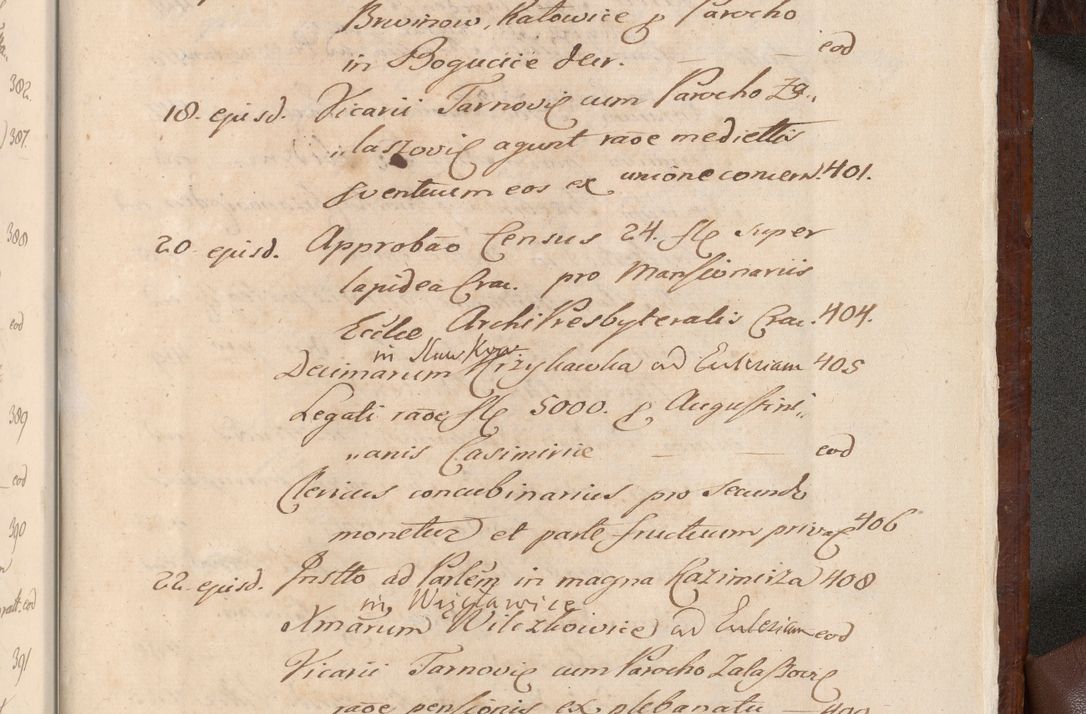 Brwinow, Katowice p Parocho
in Bogucice deser. — — eod
18. episd. Vicarii Tarnovie cum Parocho Za„
„laszovie agunt raõe mediettis
pventuum eos ex unione concern. 401.
20. episd. Approbaõ Census 24. fl super
lapidea Crac. pro Mansionariis
Ecclae ArchiPresbyteralis Crac. 404.
in
Decimarum Krzykawka ad Ecclesiam 405
Legati raõe fl 5000. p Augustini„
„anis Casimirie — — eod
Clericus concubinarius pro secundo
monetur et parte fructuum priva 406
22. episd. Instto ad Parlem in magna Kazimirza 408
in Wisclawice
Xmarum Wilczkowice ad Ecclesiam eod
Vicarii Tarnovie cum Parocho Zalaszovie
raõe pensionis ex plebanatu — 409
382.
307.
388
eod
389
eod
390
eod
391